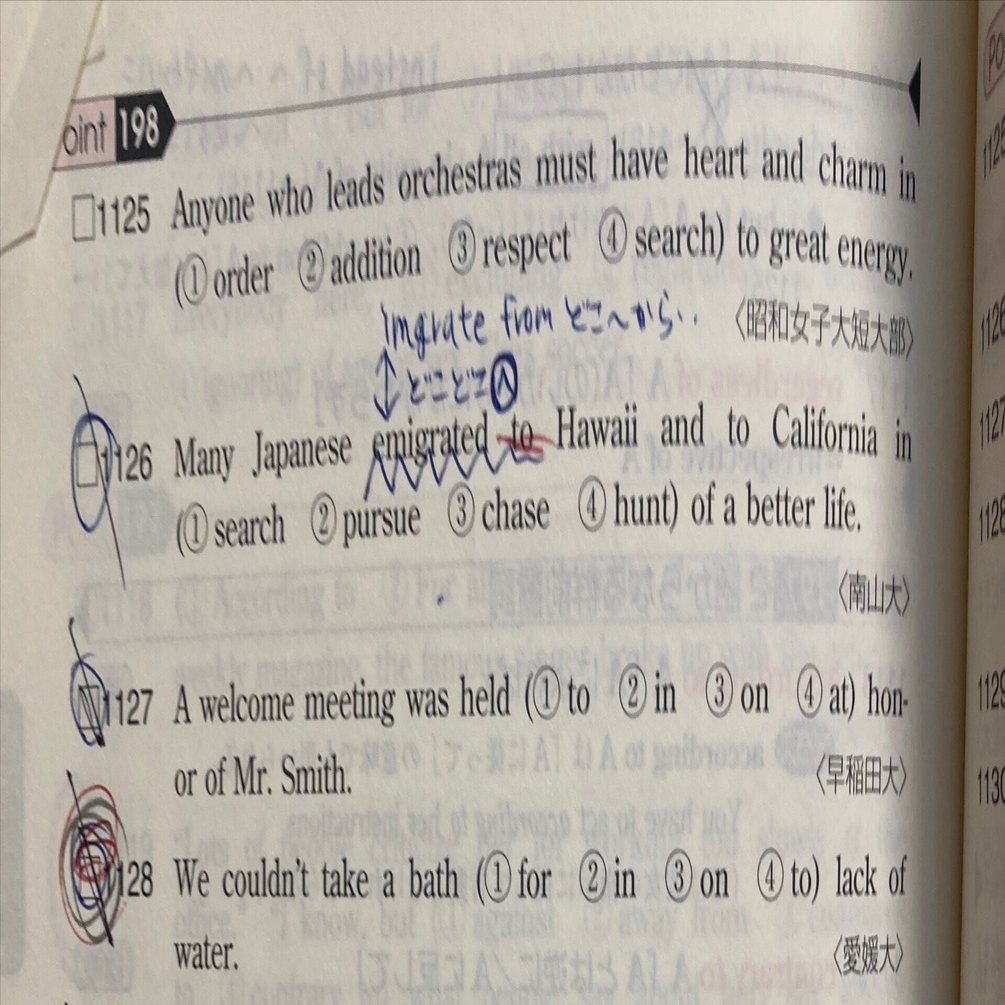 oint 198
1125 Anyone who leads orchestras must have heart and charm in
(① order ② addition ③ respect ④ search) to great energy.
〈昭和女子大短大部〉
imgrate from どこへから..
↕ どこどこへ
1126 Many Japanese emigrated to Hawaii and to California in
(① search ② pursue ③ chase ④ hunt) of a better life.
〈南山大〉
1127 A welcome meeting was held (① to ② in ③ on ④ at) hon-
or of Mr. Smith.
〈早稲田大〉
1128 We couldn't take a bath (① for ② in ③ on ④ to) lack of
water.
〈愛媛大〉